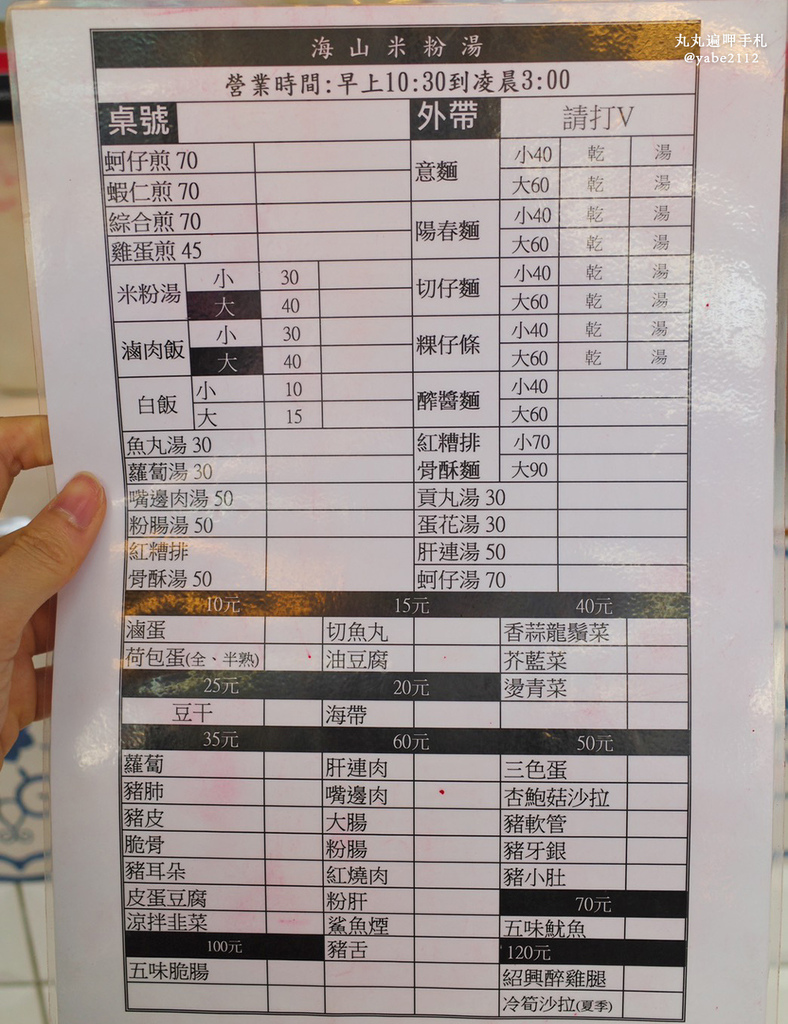 丸丸遍呷手札
@yabe2112
海山米粉湯
營業時間:早上10:30到凌晨3:00
桌號 外帶 請打V
蚵仔煎 70
蝦仁煎 70
綜合煎 70
雞蛋煎 45
米粉湯 小 30
大 40
滷肉飯 小 30
大 40
白飯 小 10
大 15
魚丸湯 30
蘿蔔湯 30
嘴邊肉湯 50
粉腸湯 50
紅糟排
骨酥湯 50
意麵 小40 乾 湯
大60 乾 湯
陽春麵 小40 乾 湯
大60 乾 湯
切仔麵 小40 乾 湯
大60 乾 湯
粿仔條 小40 乾 湯
大60 乾 湯
醡醬麵 小40
大60
紅糟排 小70
骨酥麵 大90
貢丸湯 30
蛋花湯 30
肝連湯 50
蚵仔湯 70
10元 15元 40元
滷蛋 切魚丸 香蒜龍鬚菜
荷包蛋(全、半熟) 油豆腐 芥藍菜
25元 20元 燙青菜
豆干 海帶
35元 60元 50元
蘿蔔 肝連肉 三色蛋
豬肺 嘴邊肉 杏鮑菇沙拉
豬皮 大腸 豬軟管
脆骨 粉腸 豬牙銀
豬耳朵 紅燒肉 豬小肚
皮蛋豆腐 粉肝 70元
涼拌韭菜 鯊魚煙 五味魷魚
100元 豬舌 120元
五味脆腸 紹興醉雞腿
冷筍沙拉(夏季)